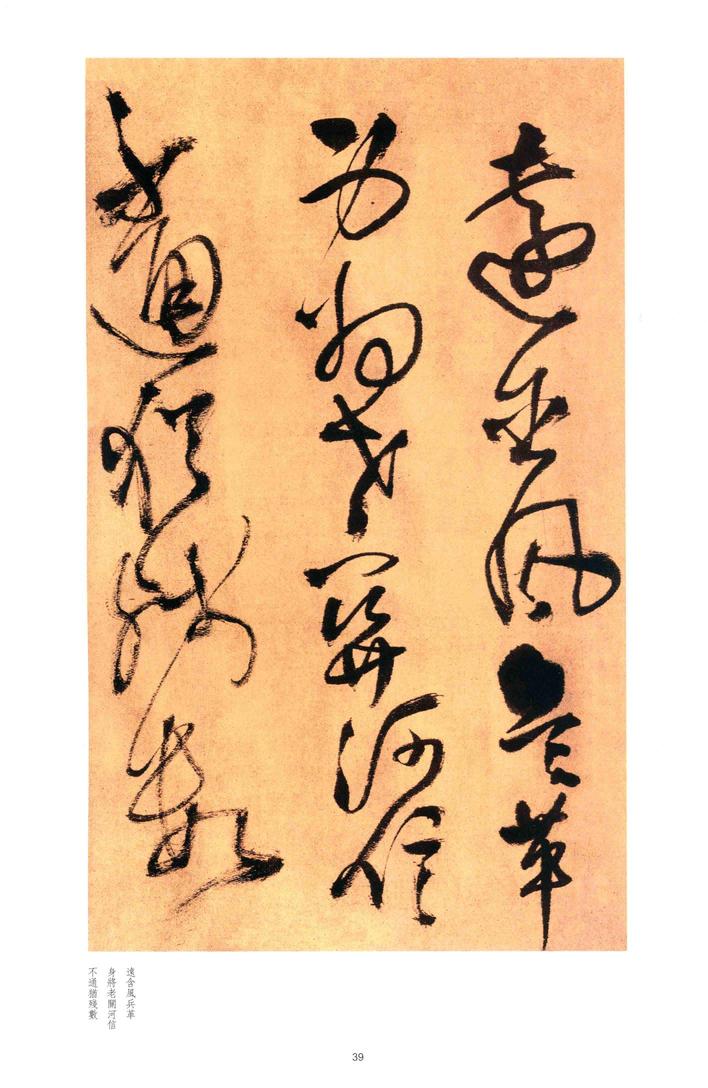 遠含風兵革
身將老關河信
不通猶殘數
遠含風兵革
身將老關河信
不通猶殘數
39